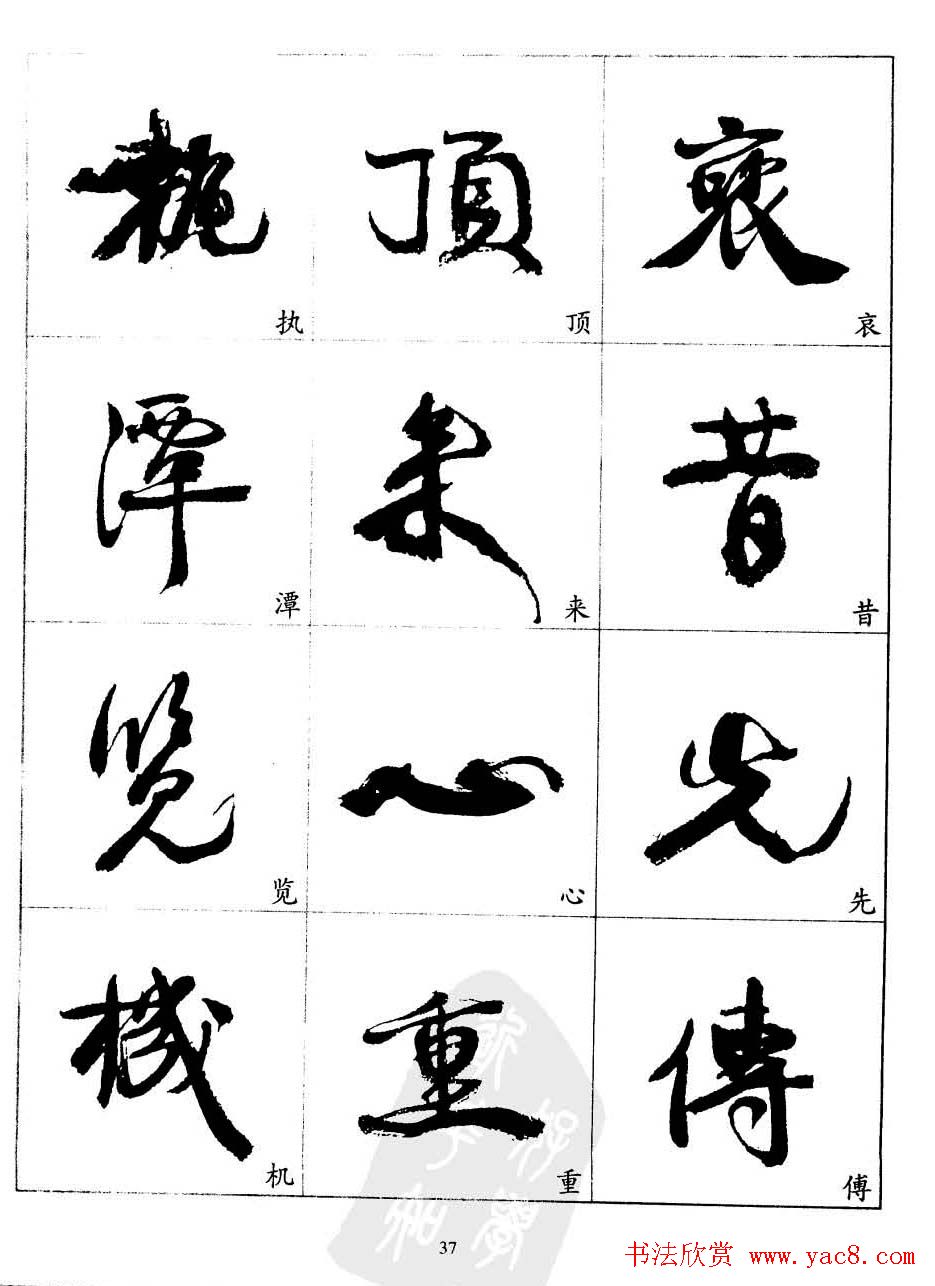 執 頂
执 顶 哀
潭 来 昔
潭 来 昔
览 心 先
览 心 先
機 重 傅
机 重 傅
37
书法欣赏 www.yac8.com